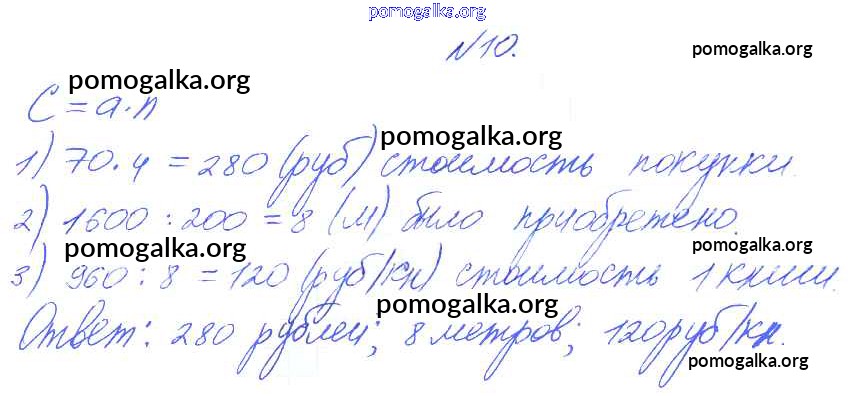 pomogalka.org
№10.
pomogalka.org
pomogalka.org
C = a · n
pomogalka.org
1) 70 · 4 = 280 (руб) стоимость покупки.
2) 1600 : 200 = 8 (м) было приобретено.
pomogalka.org
pomogalka.org
3) 960 : 8 = 120 (руб/кн) стоимость 1 книги.
pomogalka.org
Ответ: 280 рублей; 8 метров; 120 руб/кн.
pomogalka.org